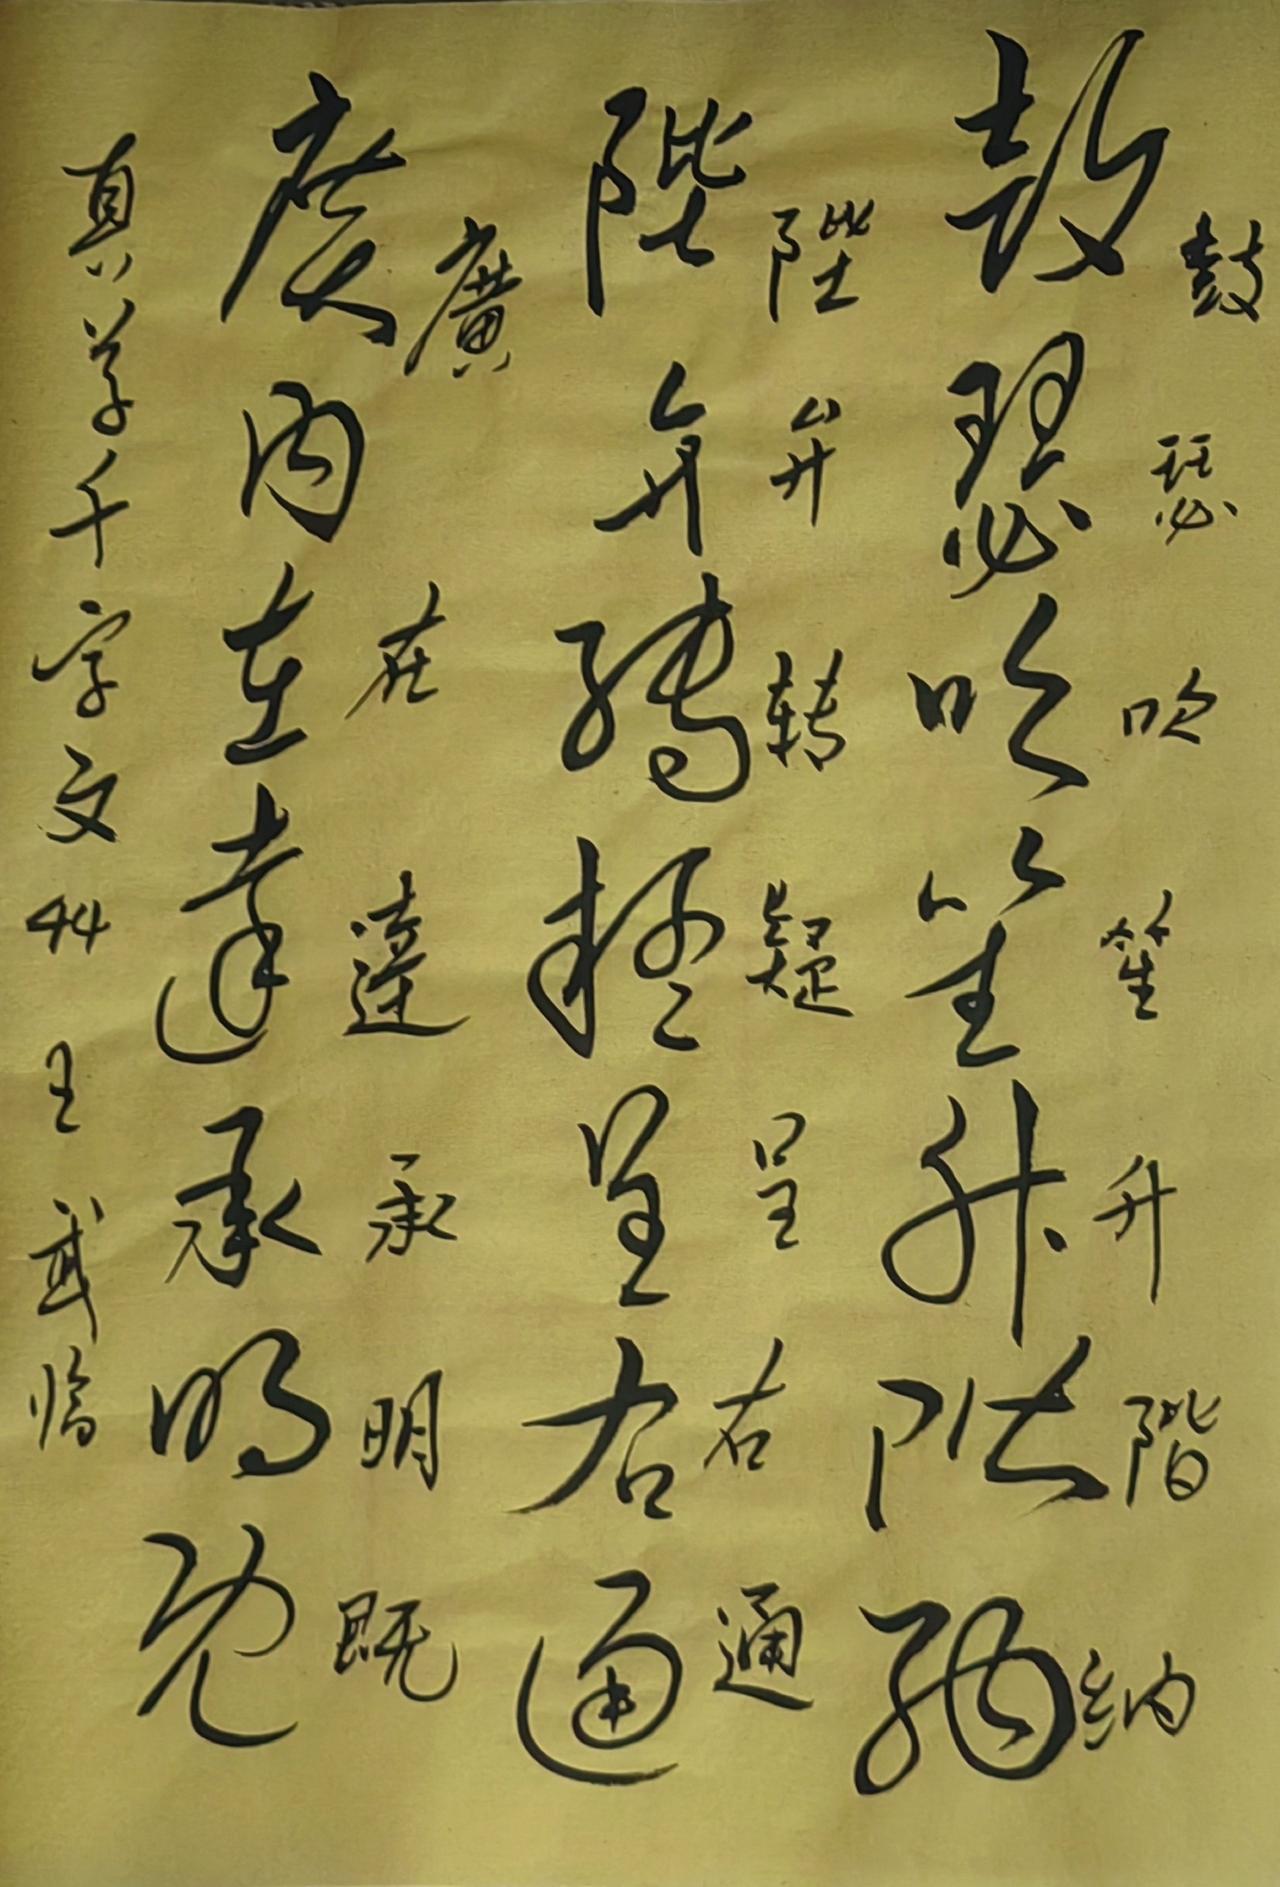 鼓瑟吹笙升階纳
鼓瑟吹笙升階納
陛弁转疑呈右通
陛弁轉疑呈右通
廣在達承明既
廣内左達承明既
真草千字文44王武临